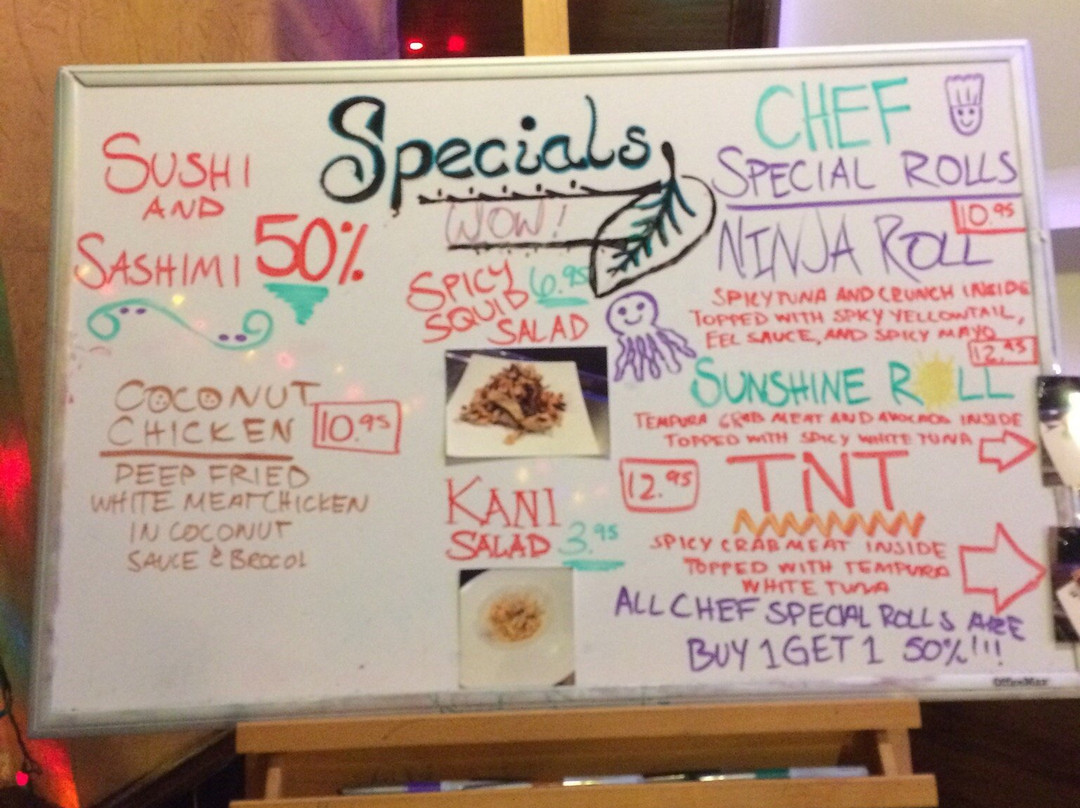 Specials
WOW!
SUSHI
AND
SASHIMI 50%
COCONUT
CHICKEN 10.95
DEEP FRIED
WHITE MEAT CHICKEN
IN COCONUT
SAUCE & BROCOL
SPICY 6.95
SQUID
SALAD
KANI
SALAD 3.95
CHEF
SPECIAL ROLLS
10.95
NINJA ROLL
SPICY TUNA AND CRUNCH INSIDE
TOPPED WITH SPICY YELLOWTAIL,
EEL SAUCE, AND SPICY MAYO
12.95
SUNSHINE ROLL
TEMPURA CRAB MEAT AND AVOCADO INSIDE
TOPPED WITH SPICY WHITE TUNA
12.95 TNT
SPICY CRABMEAT INSIDE
TOPPED WITH TEMPURA
WHITE TUNA
ALL CHEF SPECIAL ROLLS ARE
BUY 1 GET 1 50%!!!
OfficeMax